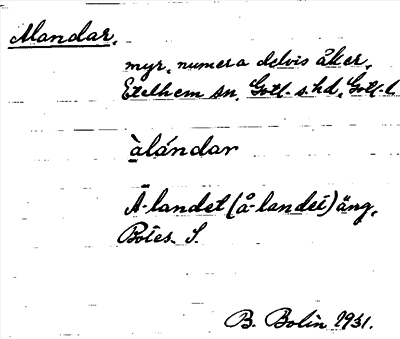 Alandar.
myr, numera delvis åker,
Etelhem sn, Gotl. s. hd, Gotl. l
àlándar
Ā-landet (å-landet) äng,
Botes. S.
B. Bolin 1931.